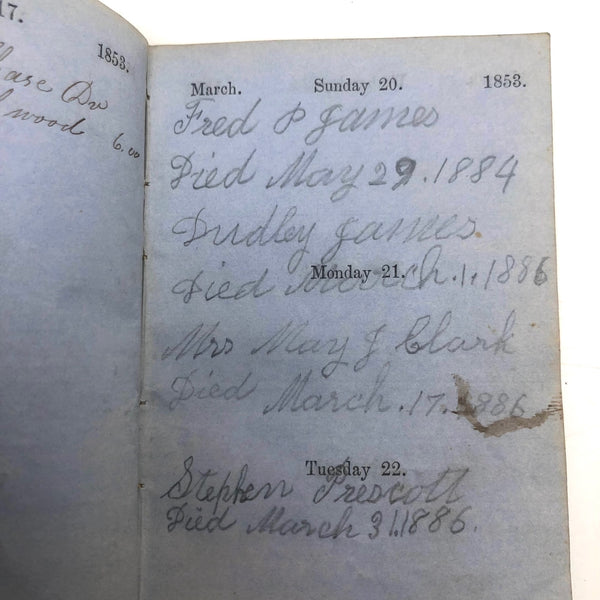 17.
1853.
wood 6.00
March. Sunday 20. 1853.
Fred P James
Died May 29. 1884
Dudley James
Monday 21.
Died March. 1. 1886
Mrs May J Clark
Died March. 17. 1886
Tuesday 22.
Stephen Prescott
Died March 31. 1886.